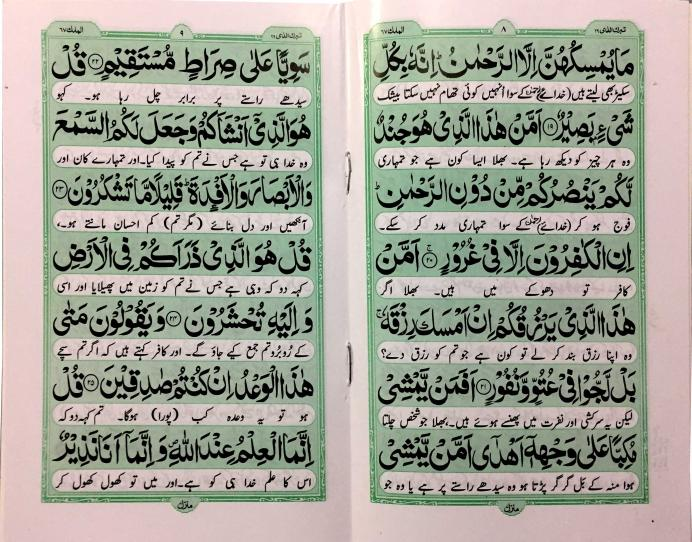 تبٰرك الذی ۲۹ ۸ الملك ۶۷
مَا يُمْسِكُهُنَّ اِلَّا الرَّحْمٰنُ ؕ اِنَّهٗ بِكُلِّ
سکیڑ بھی لیتے ہیں (خدائے) رحمٰن کے سوا انہیں کوئی تھام نہیں سکتا بیشک
شَیْءٍۭ بَصِيْرٌ ۱۹ اَمَّنْ هٰذَا الَّذِیْ هُوَ جُنْدٌ
وہ ہر چیز کو دیکھ رہا ہے۔ بھلا ایسا کون ہے جو تمہاری
لَّكُمْ يَنْصُرُكُمْ مِّنْ دُوْنِ الرَّحْمٰنِ ؕ
فوج ہو کر (خدائے) رحمٰن کے سوا تمہاری مدد کر سکے۔
اِنِ الْكٰفِرُوْنَ اِلَّا فِیْ غُرُوْرٍ ۲۰ اَمَّنْ
کافر تو دھوکے میں ہیں۔ بھلا اگر
هٰذَا الَّذِیْ يَرْزُقُكُمْ اِنْ اَمْسَكَ رِزْقَهٗ ۚ
وہ اپنا رزق بند کر لے تو کون ہے جو تم کو رزق دے؟
بَلْ لَّجُّوْا فِیْ عُتُوٍّ وَّنُفُوْرٍ ۲۱ اَفَمَنْ يَّمْشِیْ
لیکن یہ سرکشی اور نفرت میں پھنسے ہوئے ہیں۔ بھلا جو شخص چلتا
مُكِبًّا عَلٰى وَجْهِهٖۤ اَهْدٰۤى اَمَّنْ يَّمْشِیْ
ہوا منہ کے بَل گر گر پڑتا ہو وہ سیدھے راستے پر ہے یا وہ جو
منزل
تبٰرك الذی ۲۹ ۹ الملك ۶۷
سَوِيًّا عَلٰى صِرَاطٍ مُّسْتَقِيْمٍ ۲۲ قُلْ
سیدھے راستے پر برابر چل رہا ہو۔ کہو
هُوَ الَّذِیْۤ اَنْشَاَكُمْ وَجَعَلَ لَكُمُ السَّمْعَ
وہ خدا ہی تو ہے جس نے تم کو پیدا کیا۔ اور تمہارے کان اور
وَالْاَبْصَارَ وَالْاَفْـِٕدَةَ ؕ قَلِيْلًا مَّا تَشْكُرُوْنَ ۲۳
آنکھیں اور دل بنائے (مگر تم) کم احسان مانتے ہو۔
قُلْ هُوَ الَّذِیْ ذَرَاَكُمْ فِی الْاَرْضِ
کہہ دو کہ وہی ہے جس نے تم کو زمین میں پھیلایا اور اسی
وَ اِلَيْهِ تُحْشَرُوْنَ ۲۴ وَيَقُوْلُوْنَ مَتٰى
کے رُوبرُو تم جمع کیے جاؤ گے۔ اور کافر کہتے ہیں کہ اگر تم سچے
هٰذَا الْوَعْدُ اِنْ كُنْتُمْ صٰدِقِيْنَ ۲۵ قُلْ
ہو تو یہ وعدہ کب (پورا) ہوگا۔ تم کہہ دو کہ
اِنَّمَا الْعِلْمُ عِنْدَ اللّٰهِ ۪ وَ اِنَّمَاۤ اَنَا نَذِيْرٌ
اس کا علم خدا ہی کو ہے۔ اور میں تو کھول کھول کر
منزل